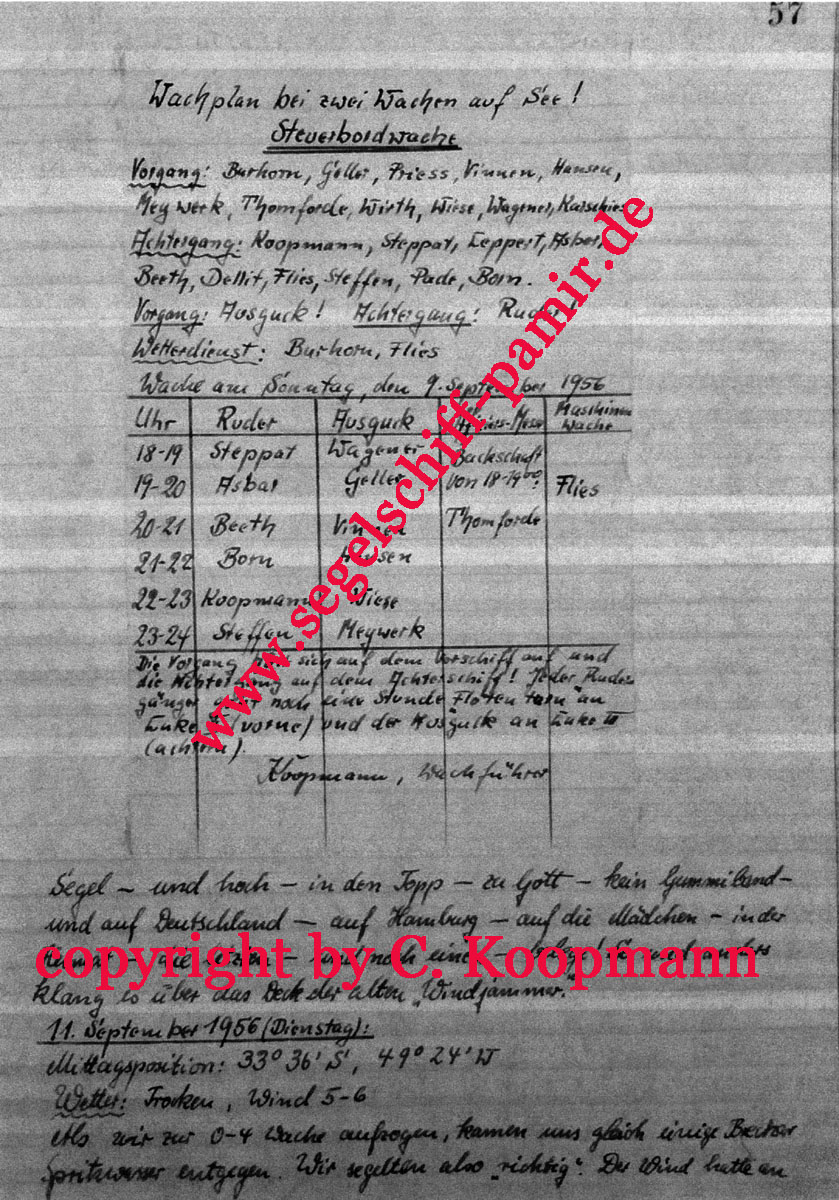 57
Wachplan bei zwei Wachen auf See!
Steuerbordwache
Vorgang: Burhorn, Geller, Priess, Vinnen, Hansen,
Meywerk, Thomforde, Wirth, Wiese, Wagener, Karschies
Achtergang: Koopmann, Steppat, Leppert, Asbar,
Beeth, Dellit, Flies, Steffen, Pade, Born.
Vorgang: Ausguck! Achtergang: Ruder!
Wetterdienst: Burhorn, Flies
Wache am Sonntag, den 9. September 1956
Uhr Ruder Ausguck Maschinen
wache
18-19 Steppat Wagener Backschaft
19-20 Asbar Geller von 18-19⁰⁰ Flies
20-21 Beeth Vinnen Thomforde
21-22 Born Hansen
22-23 Koopmann Wiese
23-24 Steffen Meywerk
Die Vorgang sich auf dem Vorschiff auf und
die Achtergang auf dem Achterschiff! Jeder Ruder-
gänger noch eine Stunde Flöten törn an
Luke (vorne) und der Ausguck an Luke
(achtern).
Koopmann, Wachführer
Segel – und hoch – in den Topp – zu Gott – kein Gummiband –
und auf Deutschland – auf Hamburg – auf die Mädchen – in der
und noch einen
klang es über das Deck der alten „Windjammer."
11. September 1956 (Dienstag):
Mittagsposition: 33° 36' S, 49° 24' W
Wetter: Trocken, Wind 5-6
Als wir zur 0-4 Wache aufzogen, kamen uns gleich einige Brecher
Spritzwasser entgegen. Wir segelten also „richtig". Der Wind hatte an
www.segelschiff-pamir.de
copyright by C. Koopmann